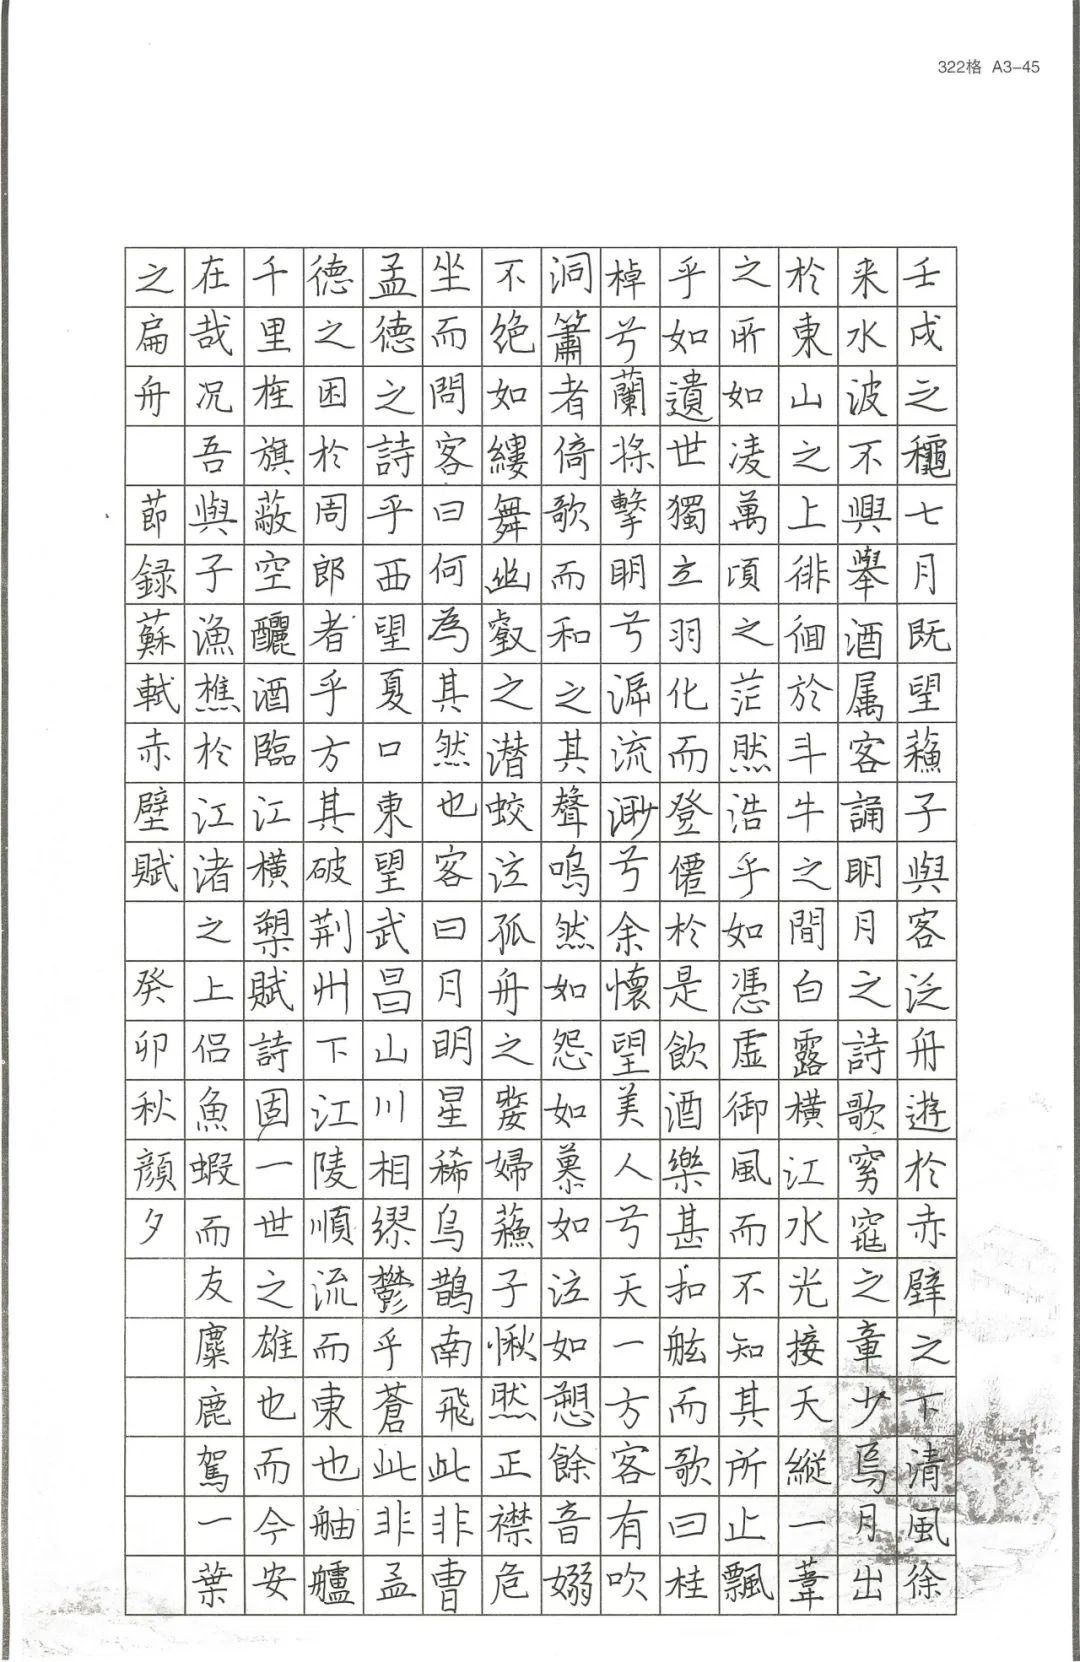 322格 A3-45
壬戌之龝七月既望蘓子與客泛舟遊於赤壁之下清風徐
来水波不興舉酒属客誦明月之詩歌窈窕之章少焉月出
於東山之上徘徊於斗牛之間白露橫江水光接天縱一葦
之所如凌萬頃之茫然浩乎如憑虛御風而不知其所止飄
乎如遺世獨立羽化而登僊於是飲酒樂甚扣舷而歌曰桂
棹兮蘭槳擊明兮泝流渺兮余懷望美人兮天一方客有吹
洞簫者倚歌而和之其聲鳴然如怨如慕如泣如愬餘音嫋
不绝如縷舞幽壑之潜蛟泣孤舟之嫠婦蘓子愀然正襟危
坐而問客曰何為其然也客曰月明星稀烏鵲南飛此非曹
孟德之詩乎西望夏口東望武昌山川相繆鬱乎蒼此非孟
德之困於周郎者乎方其破荆州下江陵順流而東也舳艫
千里旌旗蔽空釃酒臨江横槊賦詩固一世之雄也而今安
在哉况吾與子漁樵於江渚之上侣魚蝦而友麋鹿駕一葉
之扁舟 節録蘇軾赤壁賦 癸卯秋顔夕